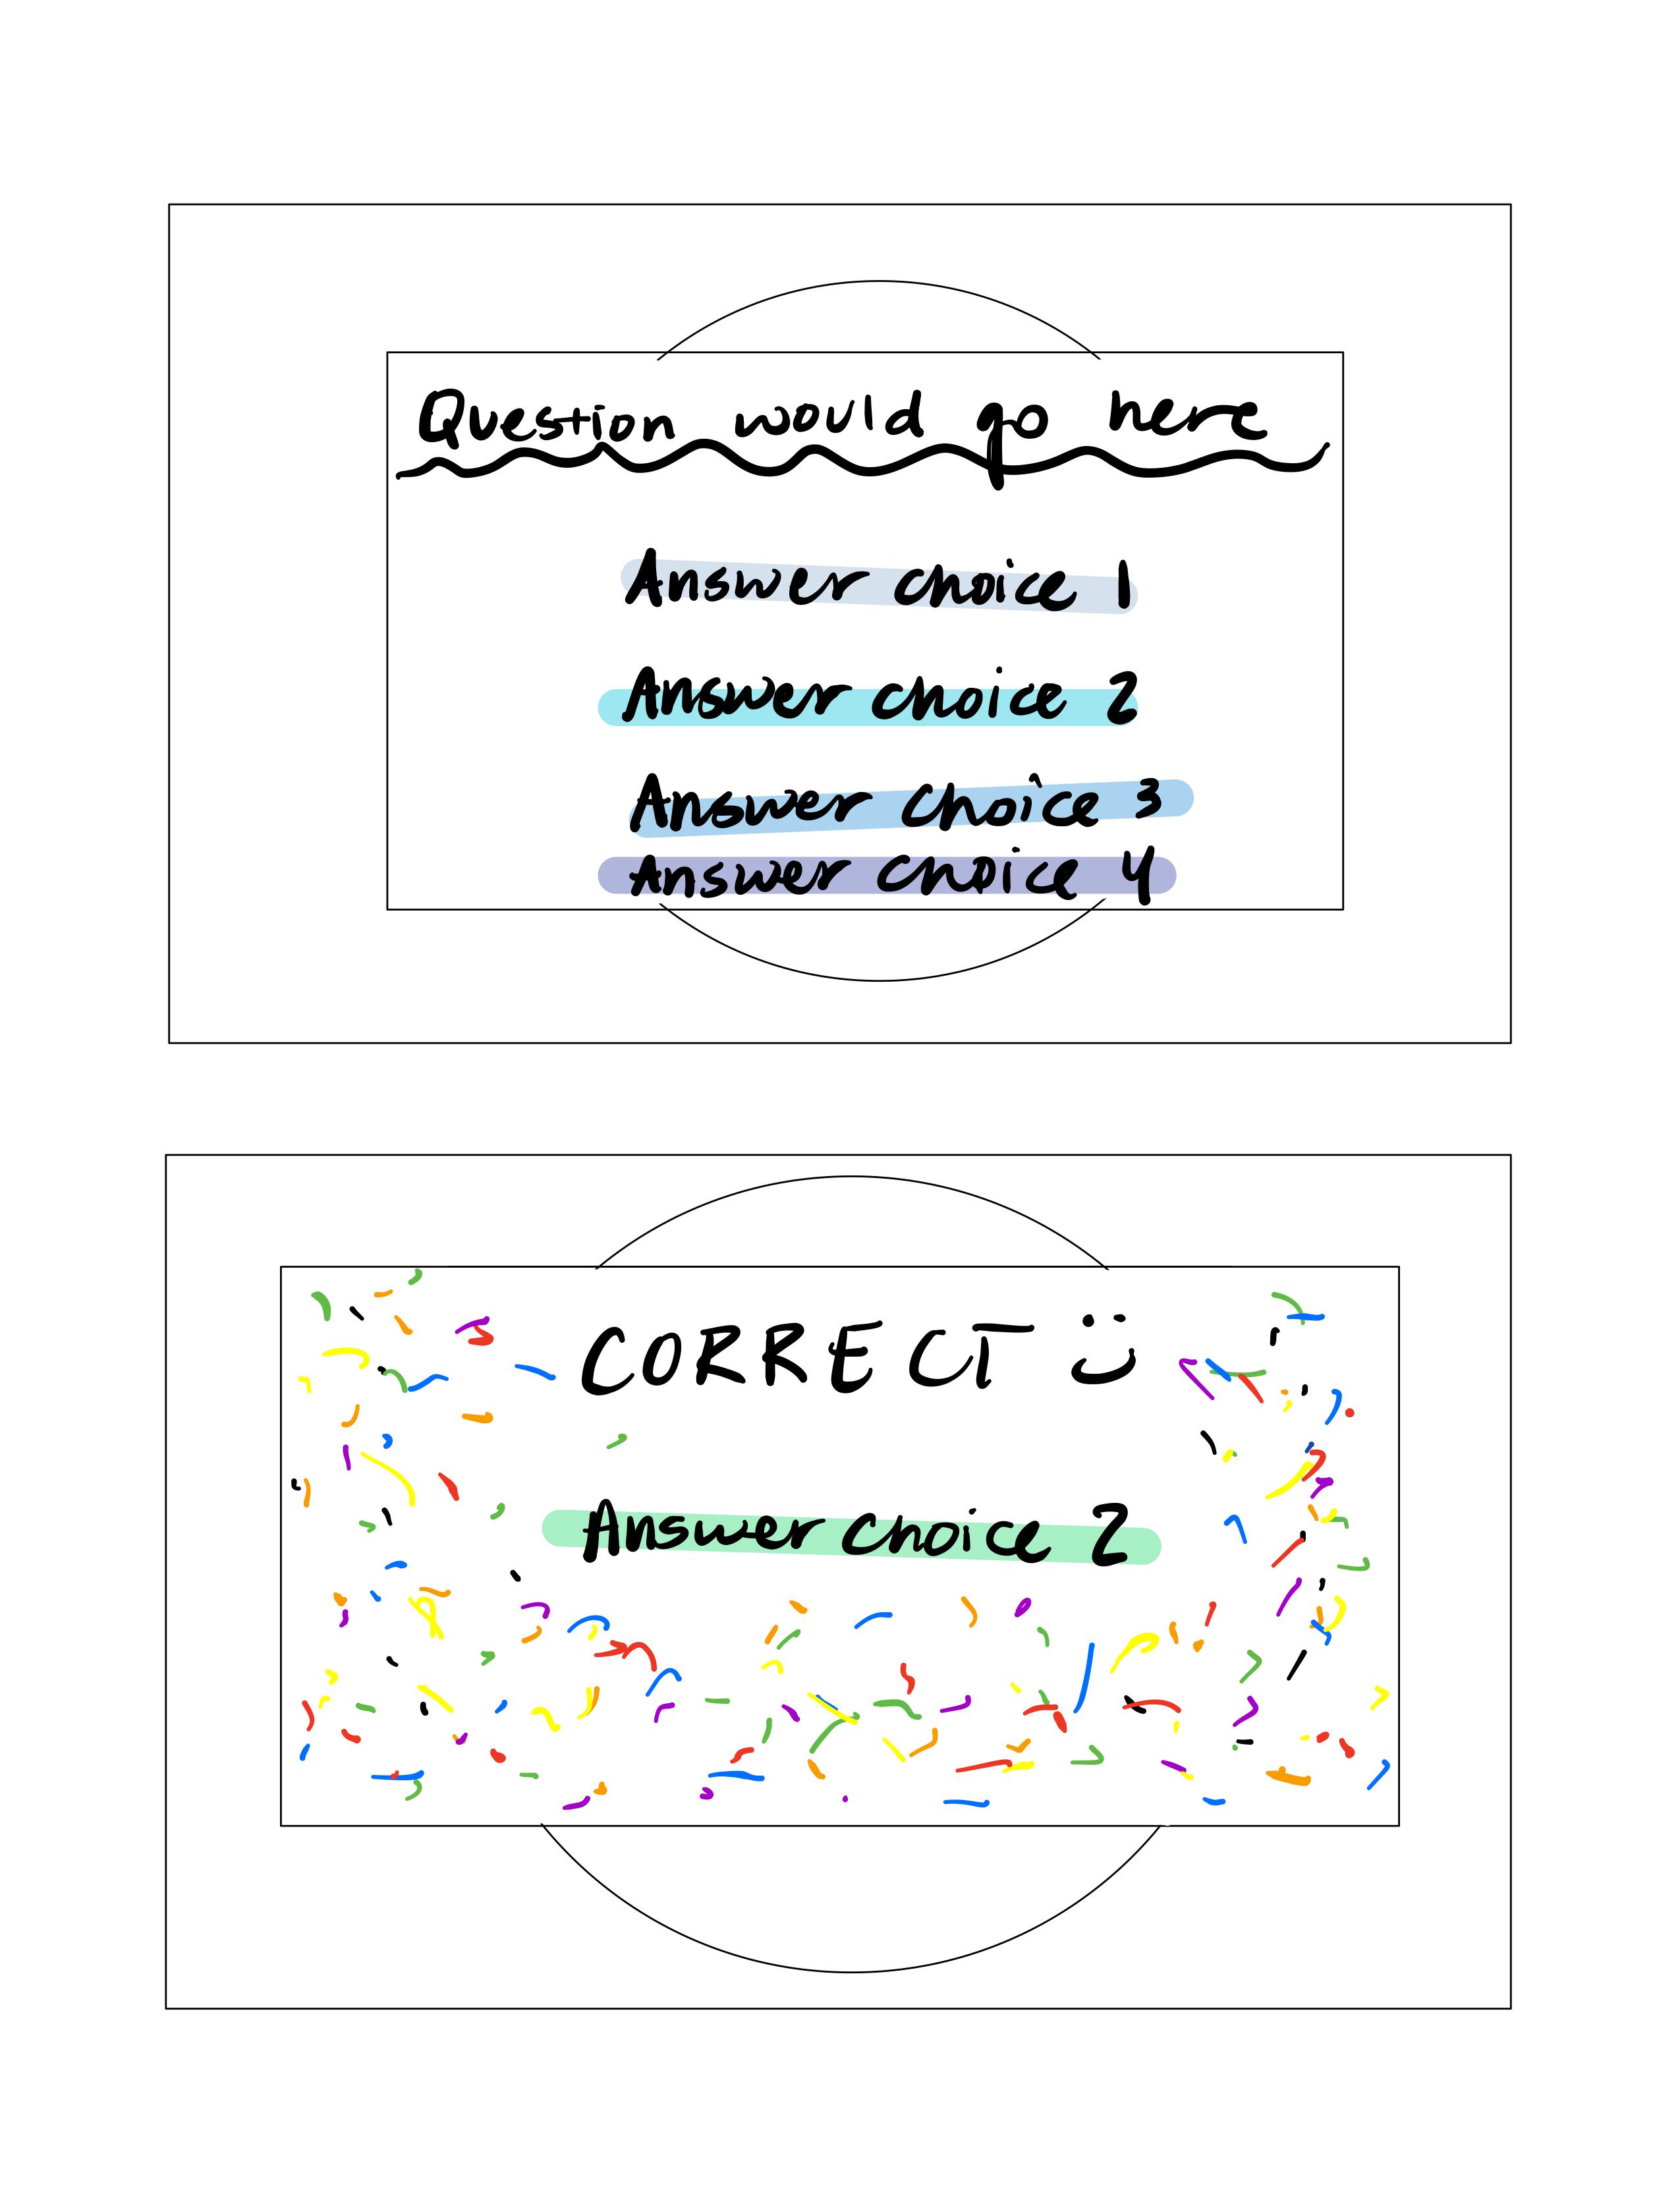 Question would go here
Answer choice 1
Answer choice 2
Answer choice 3
Answer choice 4
CORRECT :)
Answer choice 2